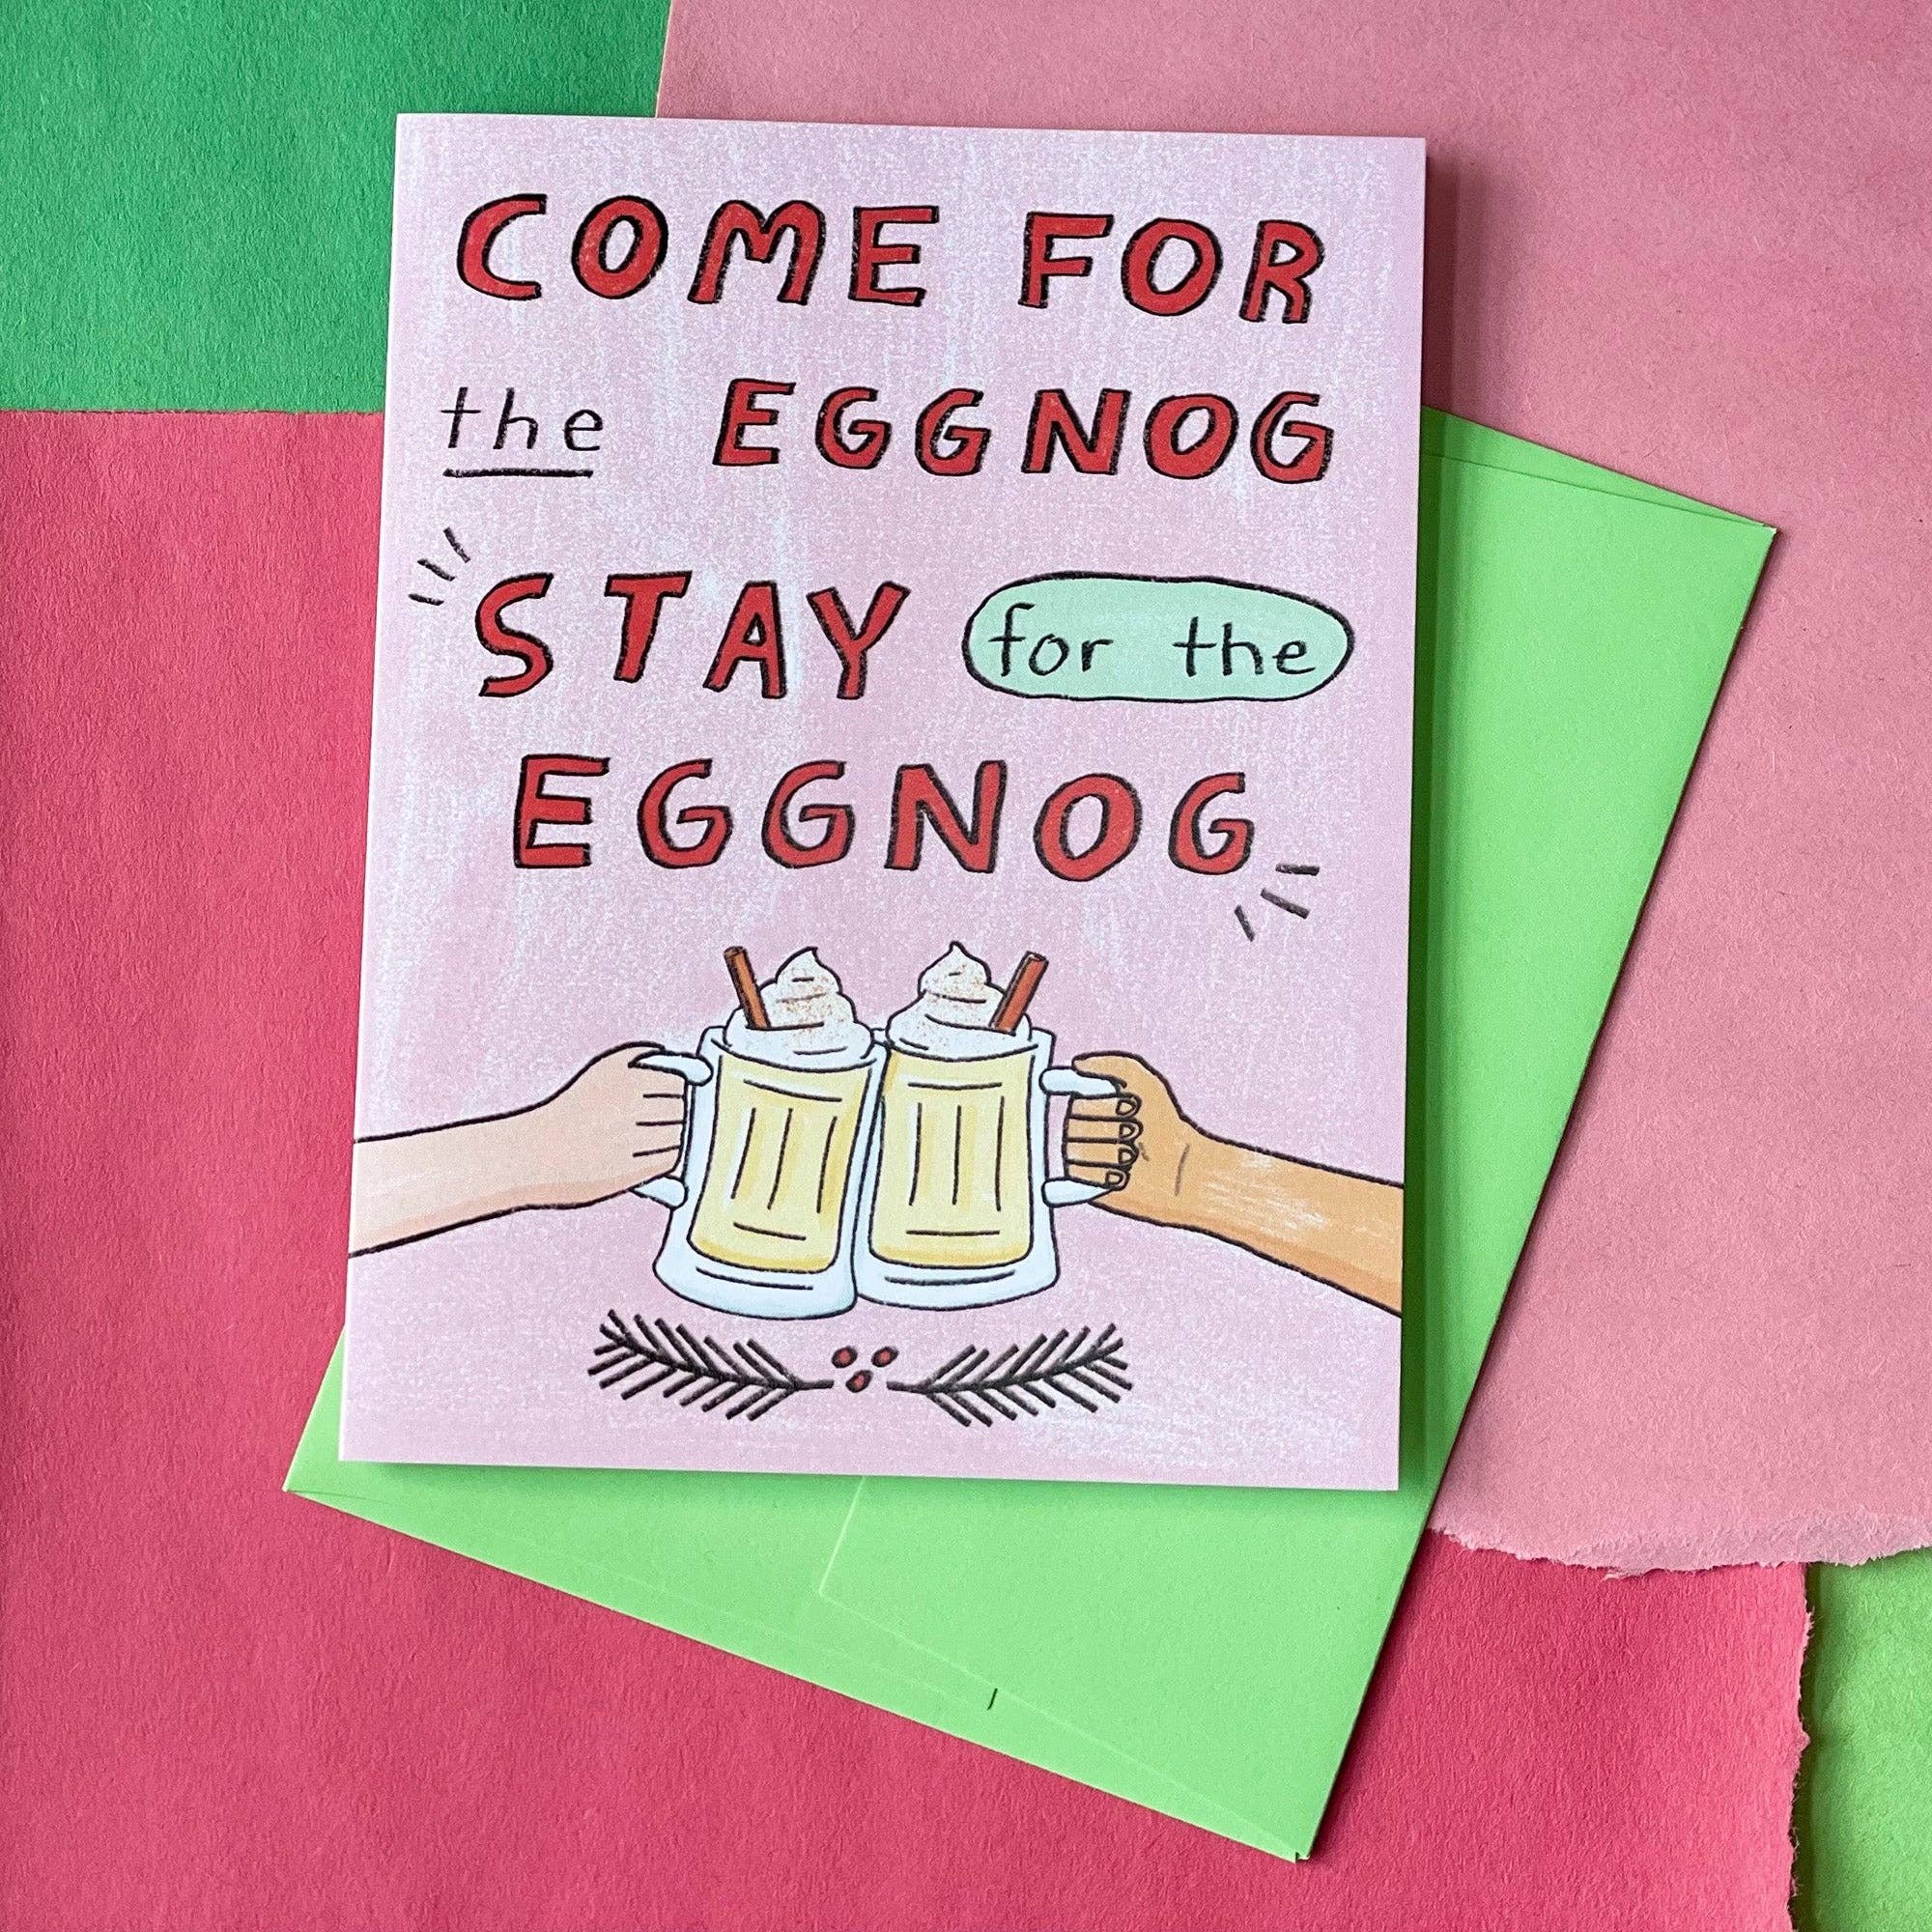 COME FOR
the EGGNOG
STAY for the
EGGNOG